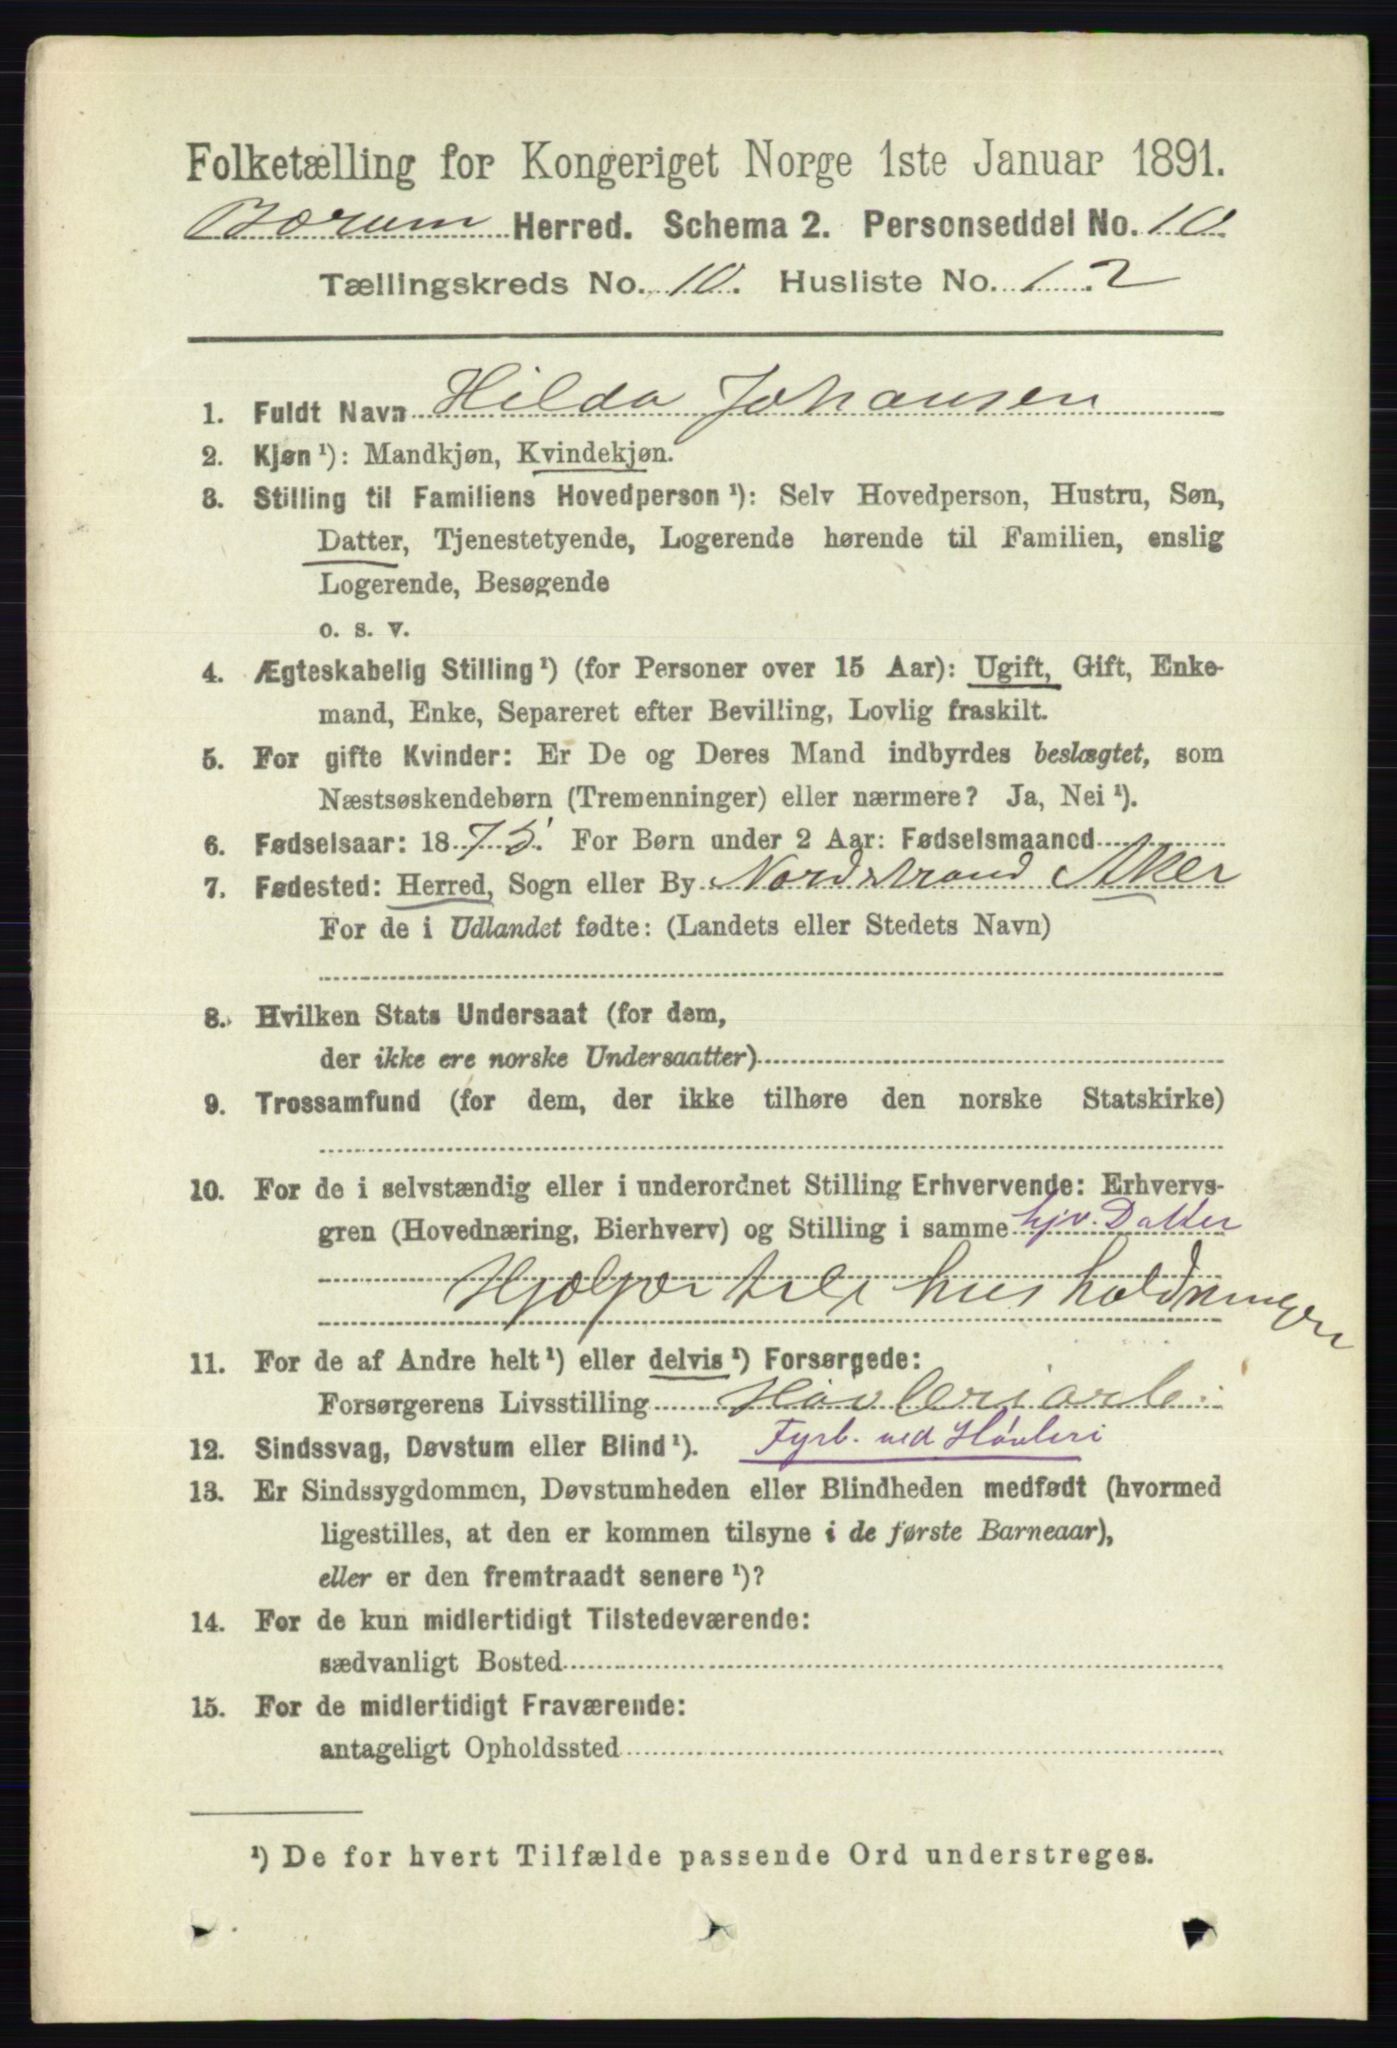 Folketælling for Kongeriget Norge 1ste Januar 1891.
Bærum Herred. Schema 2. Personseddel No. 10.
Tællingskreds No. 10. Husliste No. 12
1. Fuldt Navn Hilda Johansen
2. Kjøn ¹): Mandkjøn, Kvindekjøn.
3. Stilling til Familiens Hovedperson ¹): Selv Hovedperson, Hustru, Søn,
Datter, Tjenestetyende, Logerende hørende til Familien, enslig
Logerende, Besøgende
o. s. v.
4. Ægteskabelig Stilling ¹) (for Personer over 15 Aar): Ugift, Gift, Enke-
mand, Enke, Separeret efter Bevilling, Lovlig fraskilt.
5. For gifte Kvinder: Er De og Deres Mand indbyrdes beslægtet, som
Næstsøskendebørn (Tremenninger) eller nærmere? Ja, Nei ¹).
6. Fødselsaar: 1875. For Børn under 2 Aar: Fødselsmaaned
7. Fødested: Herred, Sogn eller By Nordstrand Aker
For de i Udlandet fødte: (Landets eller Stedets Navn)
8. Hvilken Stats Undersaat (for dem,
der ikke ere norske Undersaatter)
9. Trossamfund (for dem, der ikke tilhøre den norske Statskirke)
10. For de i selvstændig eller i underordnet Stilling Erhvervende: Erhvervs-
gren (Hovednæring, Bierhverv) og Stilling i samme hjv. Datter
Hjælper til i husholdningen
11. For de af Andre helt ¹) eller delvis ¹) Forsørgede:
Forsørgerens Livsstilling Høvleriarb.
12. Sindssvag, Døvstum eller Blind ¹). Fyrb. ved Høvleri
13. Er Sindssygdommen, Døvstumheden eller Blindheden medfødt (hvormed
ligestilles, at den er kommen tilsyne i de første Barneaar),
eller er den fremtraadt senere ¹)?
14. For de kun midlertidigt Tilstedeværende:
sædvanligt Bosted
15. For de midlertidigt Fraværende:
antageligt Opholdssted
¹) De for hvert Tilfælde passende Ord understreges.